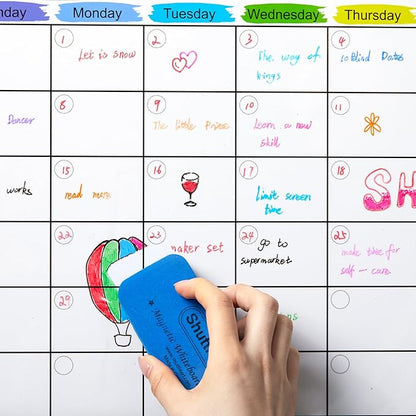 nday Monday Tuesday Wednesday Thursday
1 2 3 4
Let is snow
The way of
kings
10 Blind Dates
8 9 10 11
Dancer
The little Prince
Learn a new
skill
15 16 17 18
works
read more
Limit screen
time
SH
22 23 24 25
maker set
go to
supermarket
make time for
self-care
29
Shutt
Magnetic Whiteboard